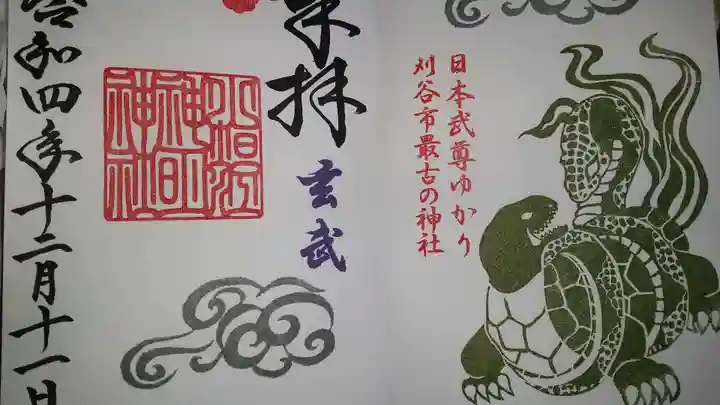 日本武尊ゆかり
刈谷市最古の神社
奉拝
玄武
小垣江
神明
神社
令和四年十二月十一日